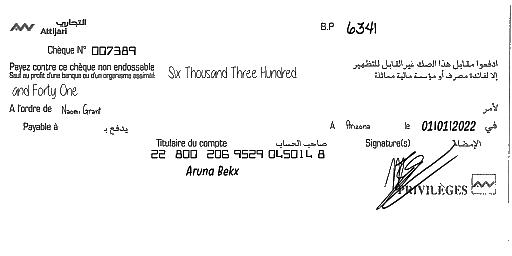 التجاري
Attijari
B.P 6341
Chèque N° 007389
Payez contre ce chèque non endossable
Sauf au profit d'une banque ou d'un organisme assimilé
Six Thousand Three Hundred
ادفعوا مقابل هذا الصك غير القابل للتظهير
إلا لفائدة مصرف أو مؤسسة مالية مماثلة
and Forty One
A l'ordre de Naomi Grant
لأمر
Payable à
يدفع بـ
A Arizona le 01/01/2022 في
Titulaire du compte صاحب الحساب
Signature(s) الإمضاء
22 800 206 9529 045014 8
Aruna Bekx
PRIVILÈGES